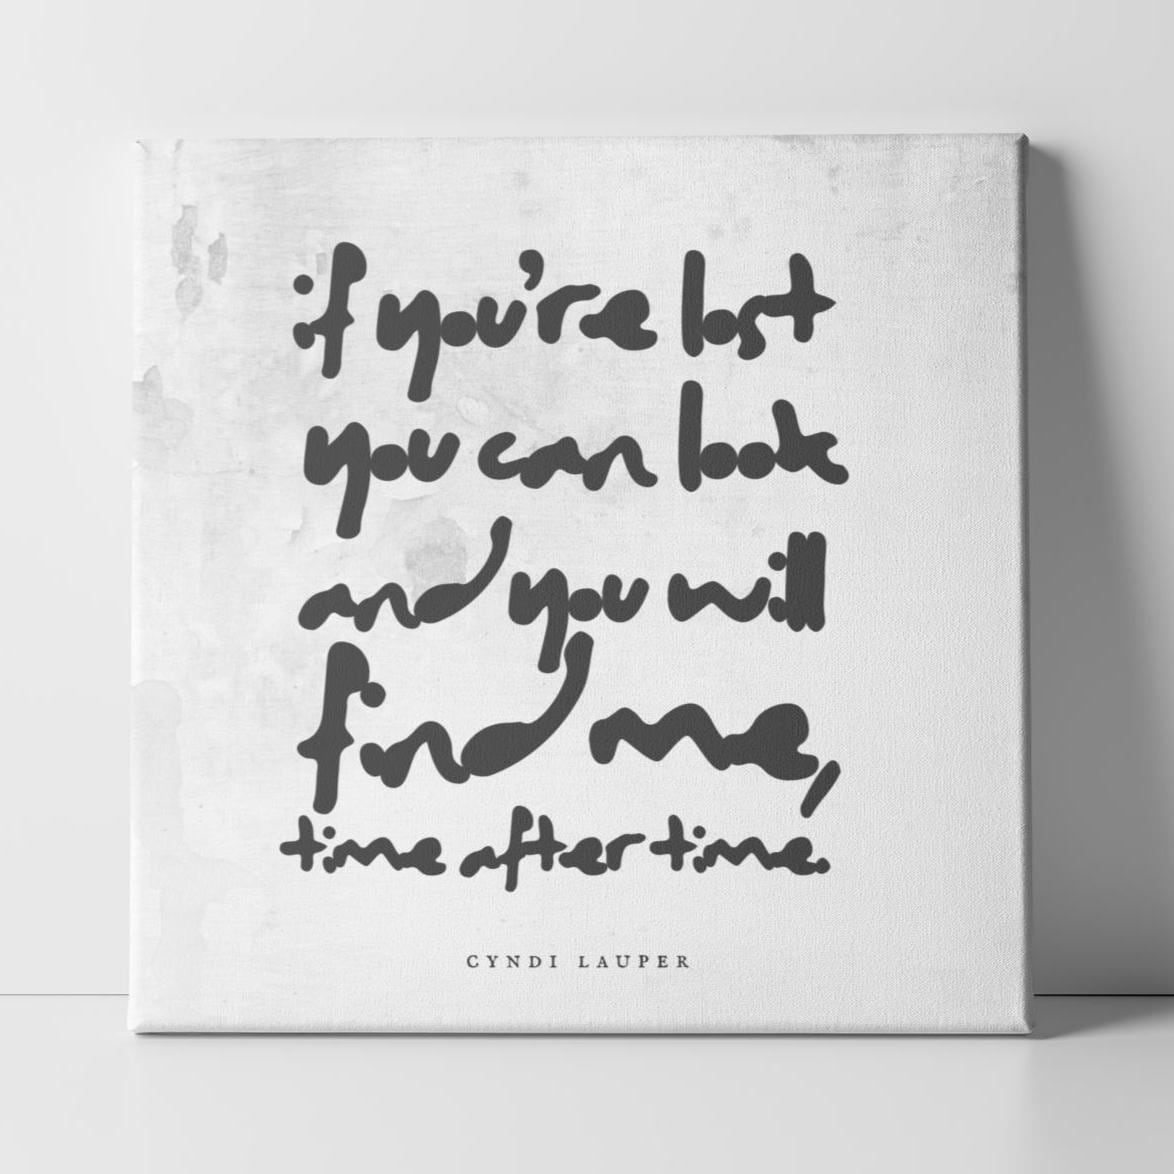 if you're lost
you can look
and you will
find me,
time after time.
CYNDI LAUPER